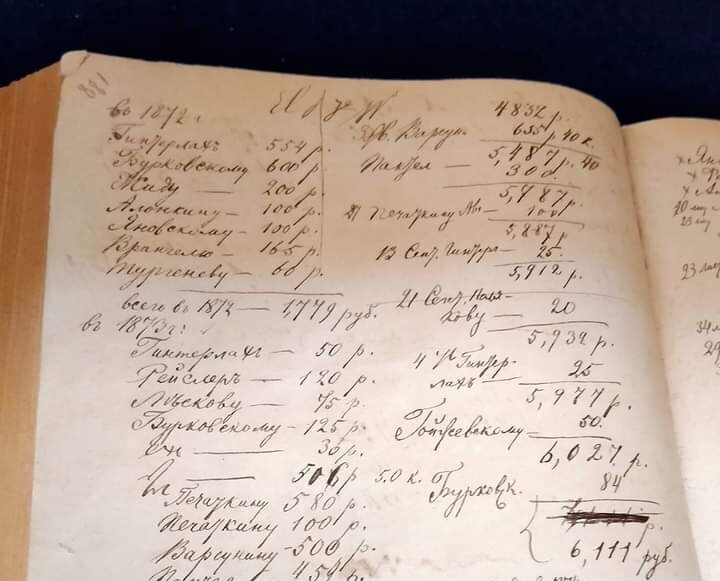 въ 1872 г.
Гинтерлахъ 554 р.
Бурковскому 600 р.
Жиду — 200 р.
Алонкину — 100 р.
Яновскому — 100 р.
Врангелю — 165 р.
Тургеневу — 60 р.
всего въ 1872 — 1,779 руб.
въ 1873 г:
Гинтерлахъ — 50 р.
Рейслеръ — 120 р.
Лѣскову — 75 р.
Бурковскому — 125 р.
30 р.
506 р 50 к.
Печаткину 580 р.
Печаткину 100 р.
Варгунину — 500 р.
459 р.
4832 р.
Варгун. 655 р 40 к.
5,487 р. 40
300.
5,787 р.
Печаткину 100
5,887 р
13 Сен. Гинтер 25.
5,912 р.
21 Сент.
кову — 20
5,932 р.
4 Гинтер-
лахъ — 25
5,977 р.
50.
6,027 р.
Бурковск. 84
р.
6,111 руб.
23 лет
29